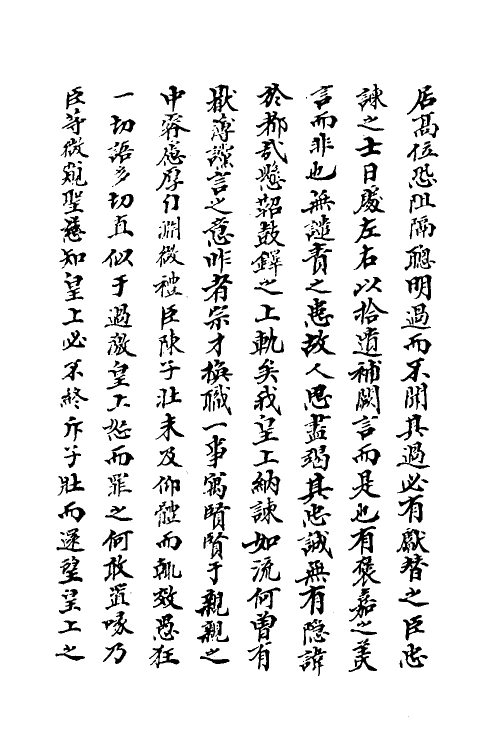 居高位恐阻隔聰明過而不聞其過必有獻替之臣忠
諫之士日處左右以拾遺補闕言而是也有褒嘉之美
言而非也無譴責之患故人思盡竭其忠誠無有隱諱
於都哉懸鞀鼓鐸之上軌矣我皇上納諫如流何曾有
厭薄讜言之意昨者宗才換職一事寓賢賢于親親之
中睿慮厚行淵微禮臣陳子壯未及仰體而輒效愚狂
一切語多切直似于過激皇上怒而罪之何敢置喙乃
臣等微窺聖慈知皇上必不終斥子壯而遂望皇上之